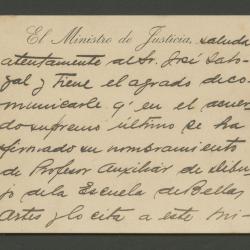 El Ministro de Justicia, saluda
atentamente al Sr. José Sabo-
gal y tiene el agrado de co-
municarle q' en el acuer-
do supremo último se ha
firmado su nombramiento
de Profesor Auxiliar de dibu-
jo de la Escuela de Bellas
Artes y lo cita a este Mi-